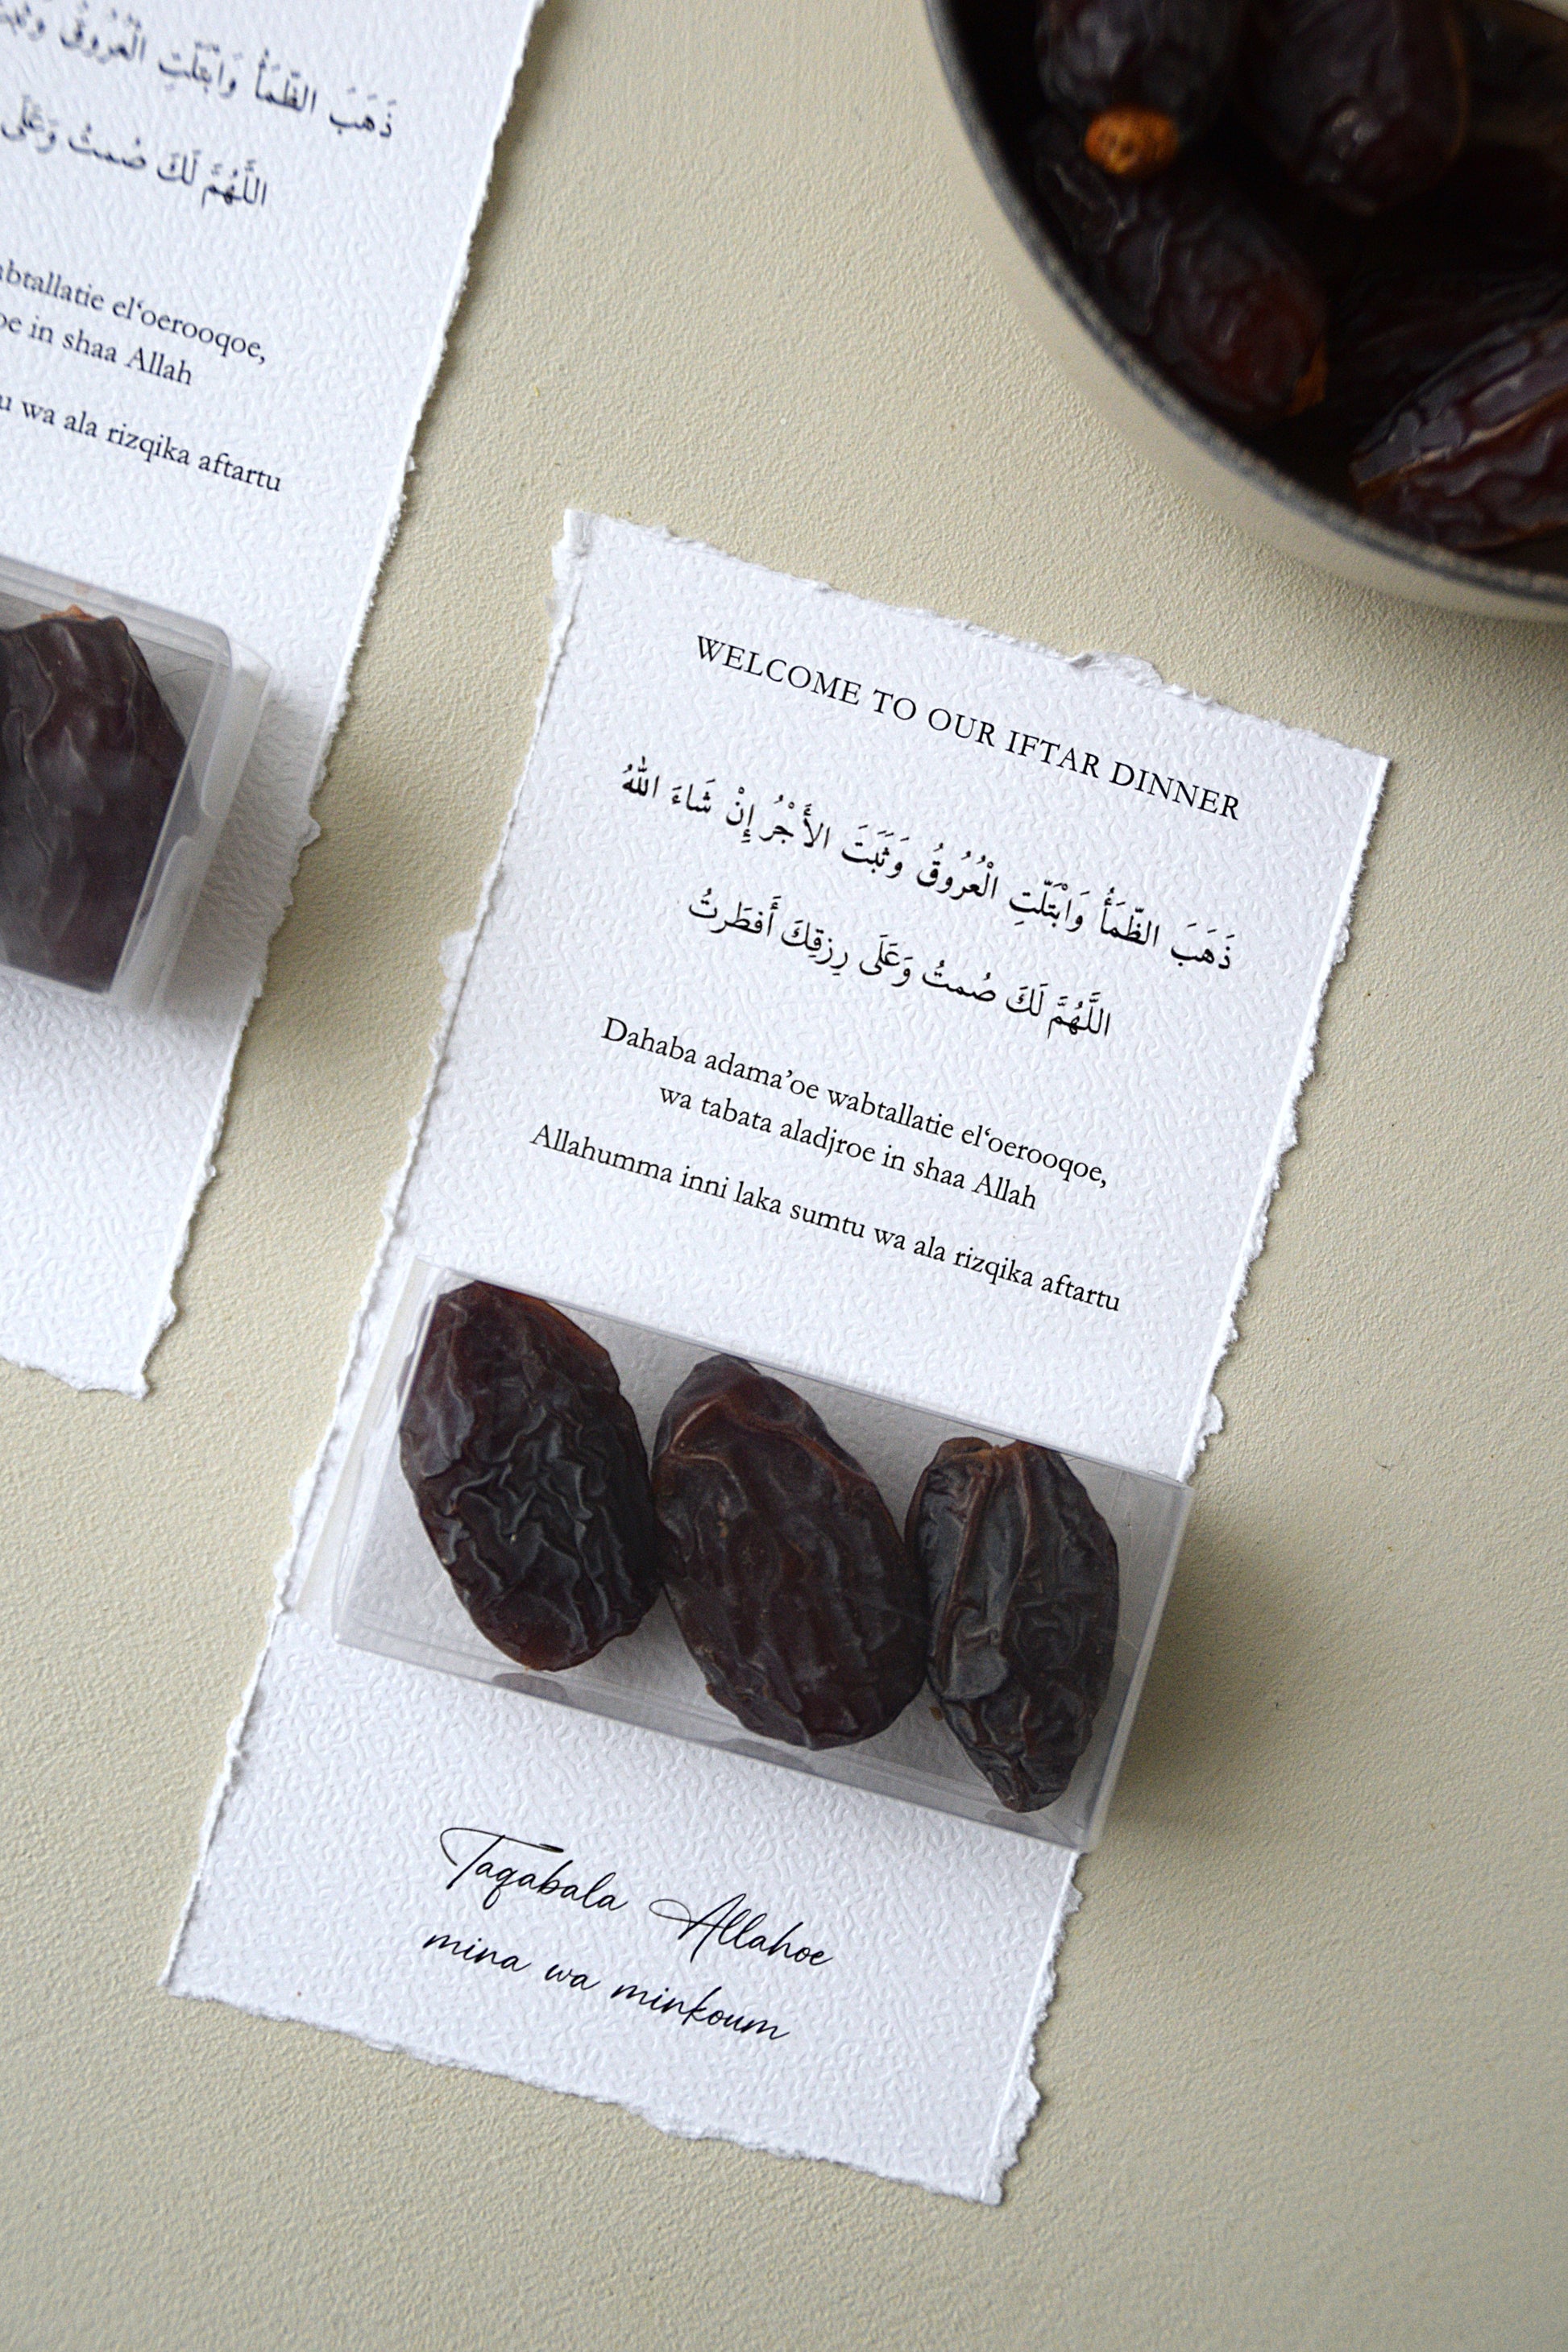 ذَهَبَ الظَّمَأُ وَابْتَلَّتِ الْعُرُوقُ
اللَّهُمَّ لَكَ صُمتُ وَعَلَى
el‘oerooqoe,
in shaa Allah
wa ala rizqika aftartu
WELCOME TO OUR IFTAR DINNER
ذَهَبَ الظَّمَأُ وَابْتَلَّتِ الْعُرُوقُ وَثَبَتَ الأَجْرُ إِنْ شَاءَ اللهُ
اللَّهُمَّ لَكَ صُمتُ وَعَلَى رِزقِكَ أَفطَرتُ
Dahaba adama’oe wabtallatie el‘oerooqoe,
wa tabata aladjroe in shaa Allah
Allahumma inni laka sumtu wa ala rizqika aftartu
Taqabala Allahoe
mina wa minkoum